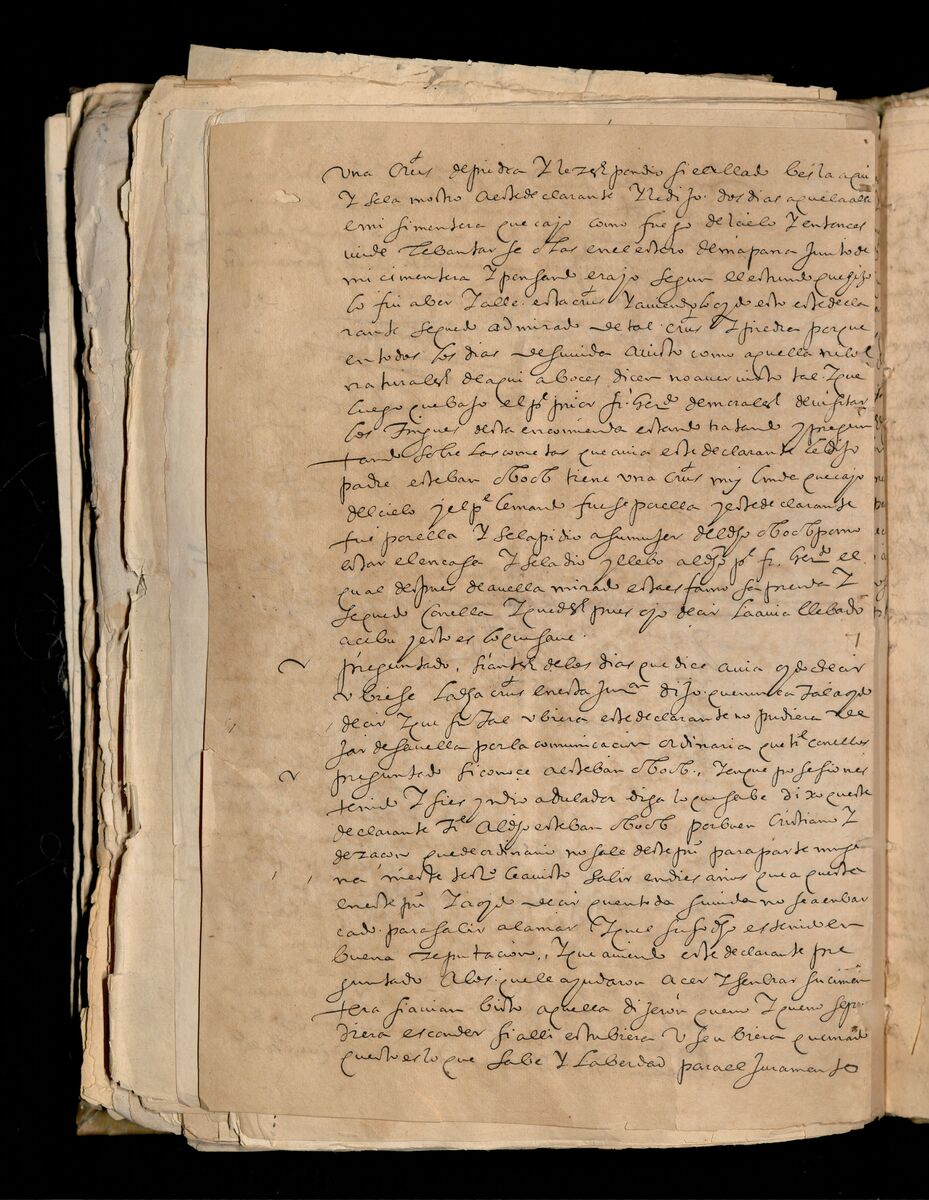 una Crus de piedra y le respondio si e allado besla aqui
y sela mostro a este declarante y le dijo dos dias a que la alle
en mi simentera que cajo como fuego del cielo y entonces
vinde lebantar se olas en el estero de mapana junto de
mi cimentera y pensando era jo segun el estruendo que hizo
lo fui a ber y alle esta crus y auiendo oydo esto este decla
rante se quedo admirado de tal crus y piedra porque
en todos los dias de su uida a uisto como aquella ni los
naturales de aqui a boces dicen no auer uisto tal y que
luego que bajo el pe prior fr. Herdo de morales de uisitar
los Pueblos desta encomienda estando tratando y pregun
tando sobre las cometas que auia este declarante le dijo
padre esteban tiene una crus muy linda que cajo
del cielo y el pe le mando fuese por ella y este declarante
fue por ella y se la pidio a su mujer del dho por no
estar el en casa y se la dio y llebo al dho pe fr. Herdo el
qual despues de auella mirado
se quedo con ella y que despues ojo decir la auia llebado
a cebu y esto es lo que saue
preguntado, si antes de los dias que dice auia oydo decir
ubiese la dha crus en esta dijo que nunca tal a oydo
decir y que si tal ubiera este declarante no pudiera de
jar de sauella por la comunicacion ordinaria que tie con ellos
preguntado si conoce a esteban y en que posesion es
tenido y si es yndio adulador diga lo que sabe dixo que este
declarante tie al dho esteban por buen Cristiano y
de razon que de ordinario no sale deste puo para parte ningu
na y este testo le a uisto salir en dies años que a que esta
en este puo y a oydo decir que en toda su uida no se a enbar
cado para salir a la mar y que el suso dho es tenido en
buena reputacion, y que auiendo este declarante pre
guntado a los que le ayudaron a acer y senbrar su cimen
tera si auian bisto aquella dijeron que no y que no se pu
diera esconder si alli estubiera o se ubiera quemado
que esto es lo que sabe y la berdad para el Juramento